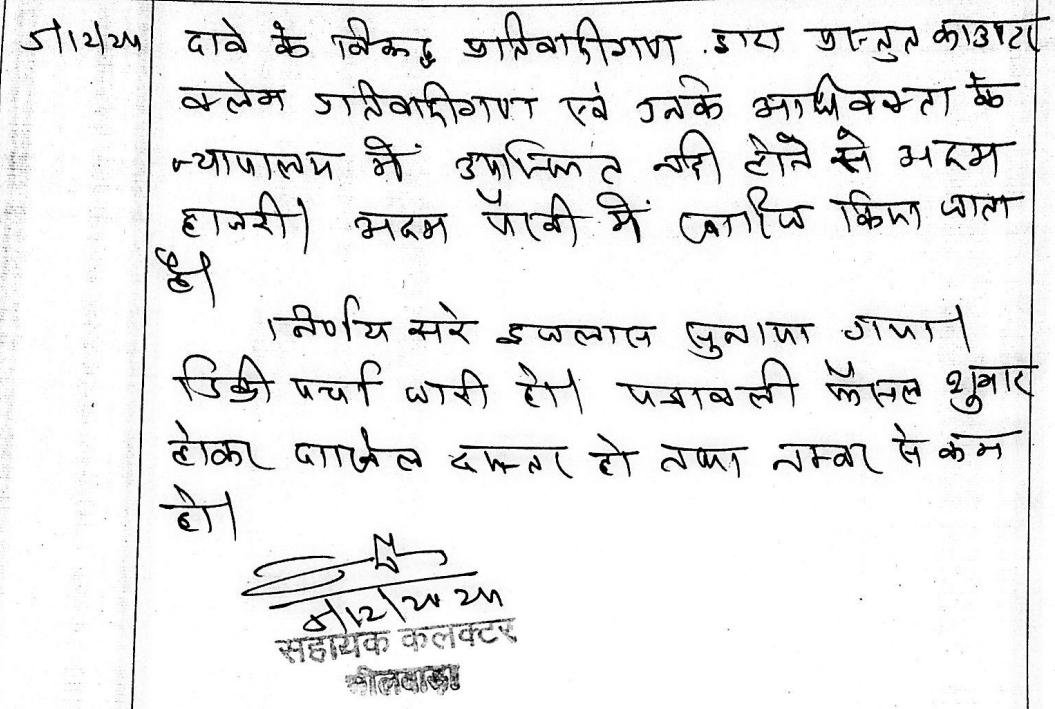 दावे के विरूद्ध प्रतिवादीगण द्वारा प्रस्तुत काउण्टर
क्लेम प्रतिवादीगण एवं उनके अधिवक्ता के
न्यायालय में उपस्थित नही होने से अदम
हाजरी। अदम पैरवी में खारिज किया जाता
है।
निर्णय सरे इजलास सुनाया गया।
डिक्री पर्चा जारी हो। पत्रावली फैसल शुमार
होकर दाखिल दफ्तर हो तथा नम्बर से कम
हो।
सहायक कलक्टर
भीलवाड़ा